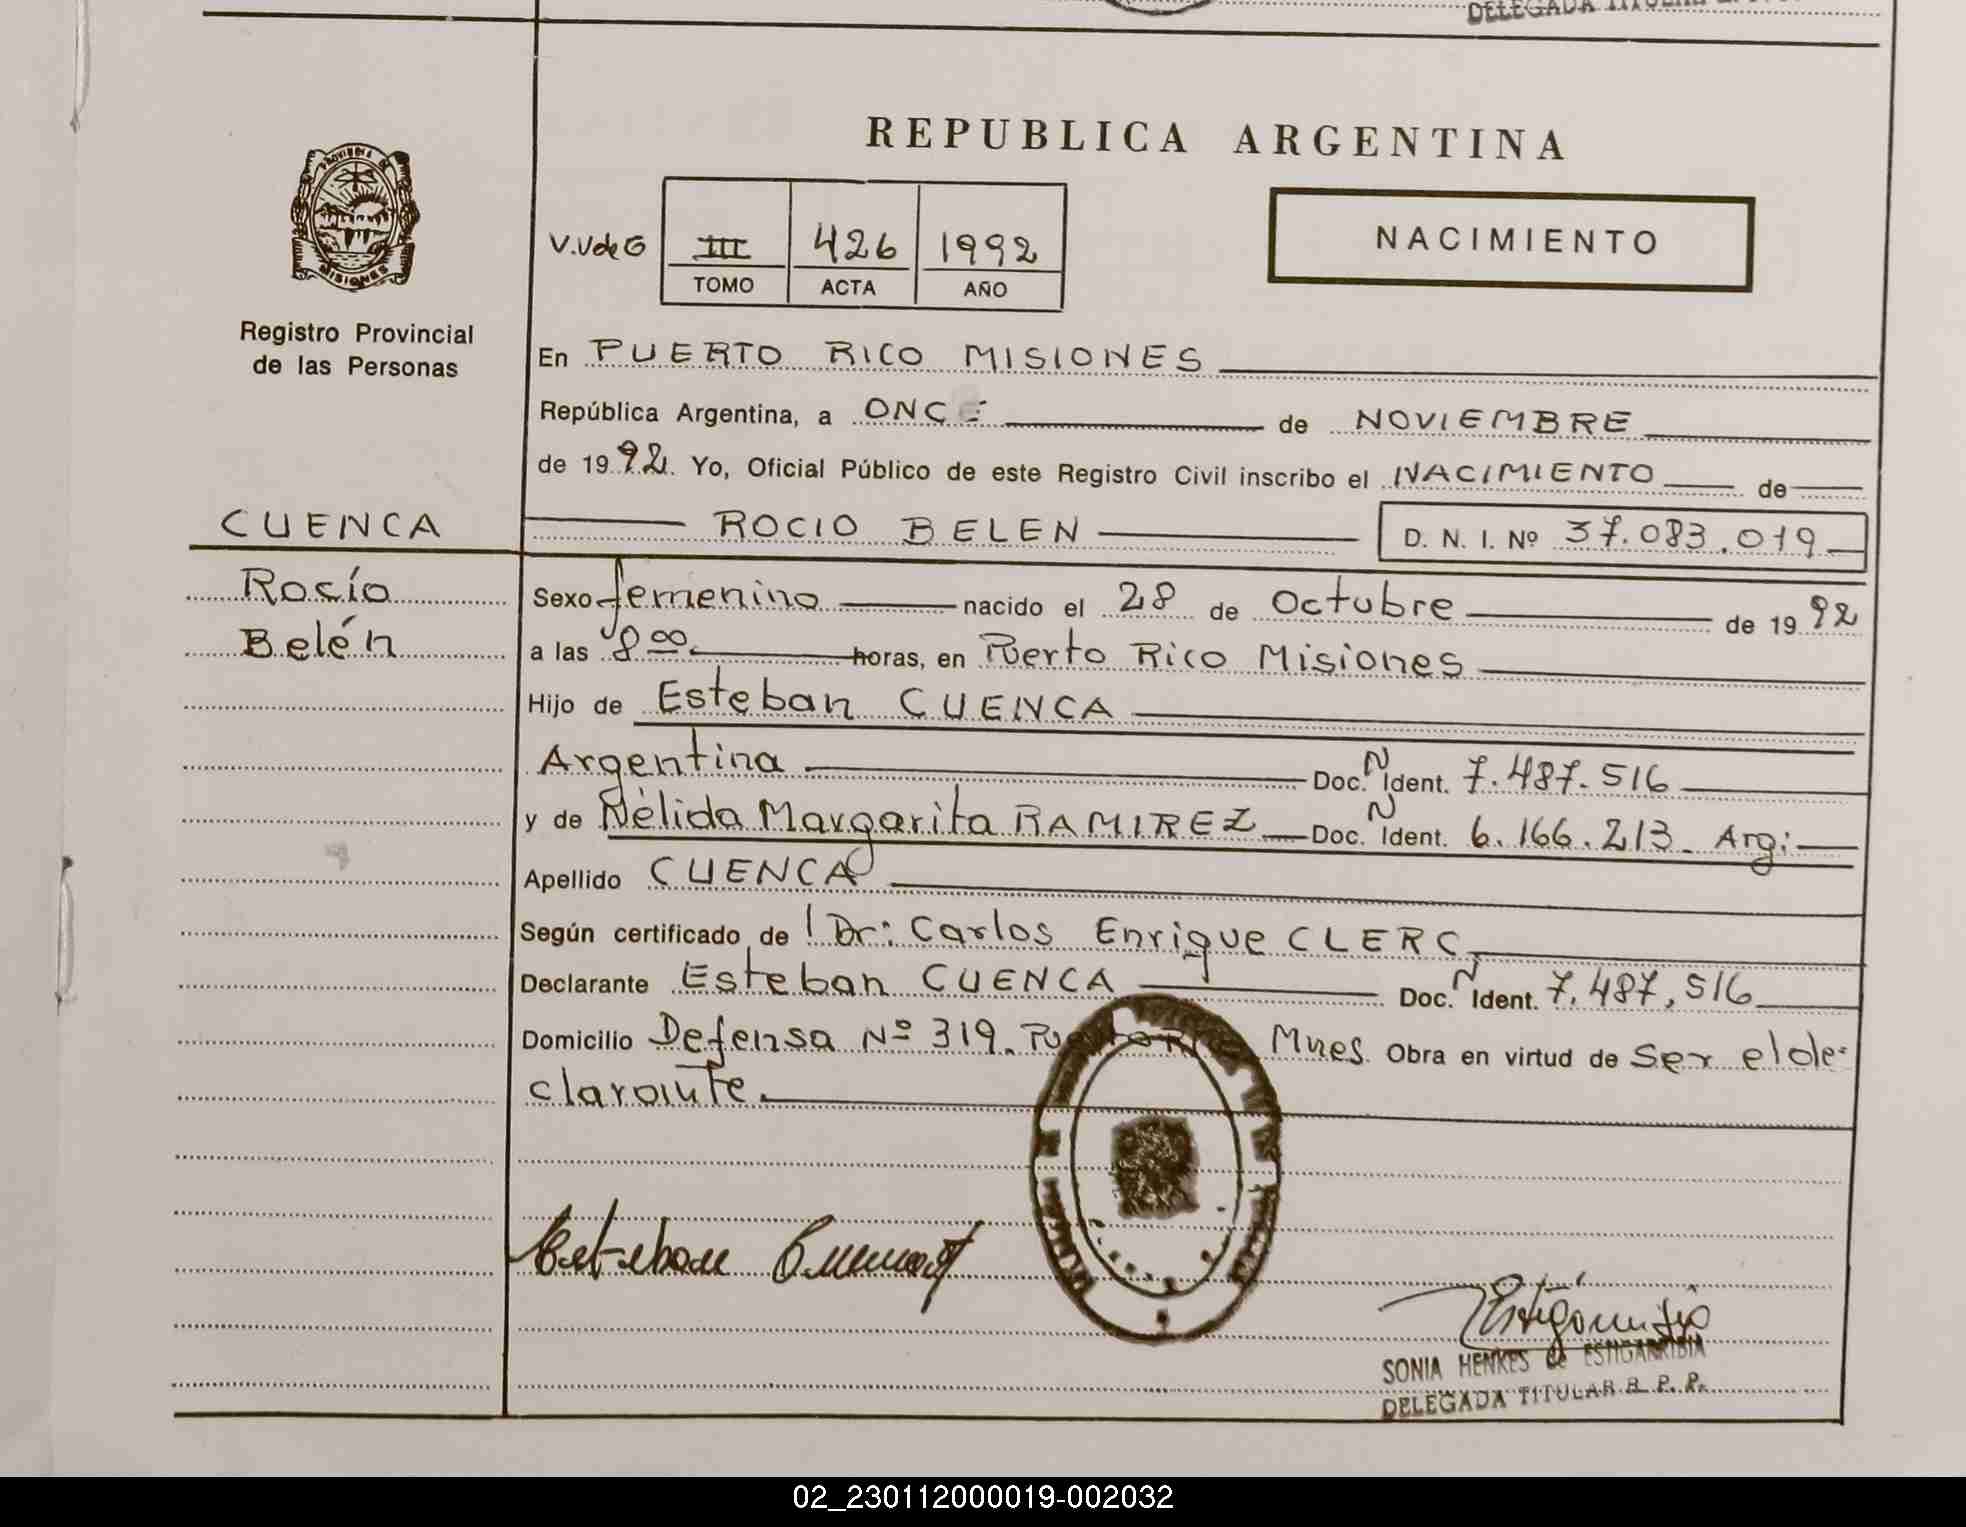 DELEGADA TITULAR
REPUBLICA ARGENTINA
PROVINCIA DE
MISIONES
V.V de G III 426 1992
TOMO ACTA AÑO
NACIMIENTO
Registro Provincial
de las Personas
En PUERTO RICO MISIONES
República Argentina, a ONCE de NOVIEMBRE
de 1992. Yo, Oficial Público de este Registro Civil inscribo el NACIMIENTO de
CUENCA ROCIO BELEN D. N. I. Nº 37.083.019
Rocío Sexo femenino nacido el 28 de Octubre de 1992
Belén a las 8 00 horas, en Puerto Rico Misiones
Hijo de Esteban CUENCA
Argentina Doc. N Ident. 7.487.516
y de Nélida Margarita RAMIREZ Doc. N Ident. 6.166.213 Arg:
Apellido CUENCA
Según certificado de l Dr: Carlos Enrique CLERC
Declarante Esteban CUENCA Doc. N Ident. 7.487,516
Domicilio Defensa Nº 319. Puerto Rico Mnes. Obra en virtud de ser el de-
clarante.
Esteban Cuenca
SONIA HENKES de ESTIGARRIBIA
DELEGADA TITULAR R. P. P.
02_230112000019-002032